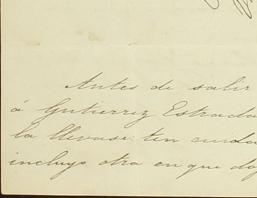 Antes de salir
á Gutierrez Estrada
la llevase: tan
incluyo otra en que